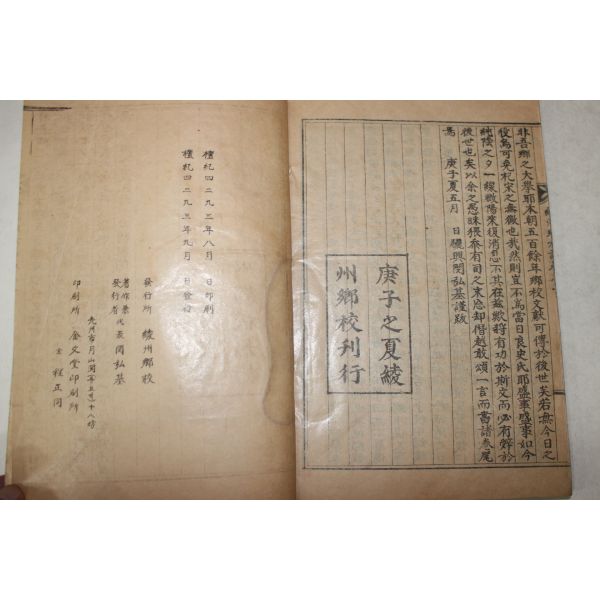 非吾鄉之大擧耶本朝五百餘年鄉校文獻可傳於後世矣若無今日之
役烏可免杞宋之無徵也哉然則豈不爲當日良史氏耶盛事盛事如今
純陰之夕一線微陽來復消息不其在玆歟將有功於斯文而必有辭於
後世也矣以余之愚昧猥忝有司之末忘却僭越敢頌一言而書諸卷尾
焉 庚子夏五月 日驪興閔弘基謹跋
庚子之夏綾
州鄉校刊行
檀紀四二九三年八月 日印刷
檀紀四二九三年九月 日發行
發行所 綾州鄉校
著作兼
發行者 代表 閔弘基
光州市
印刷所 金文堂印刷所
主 程正同